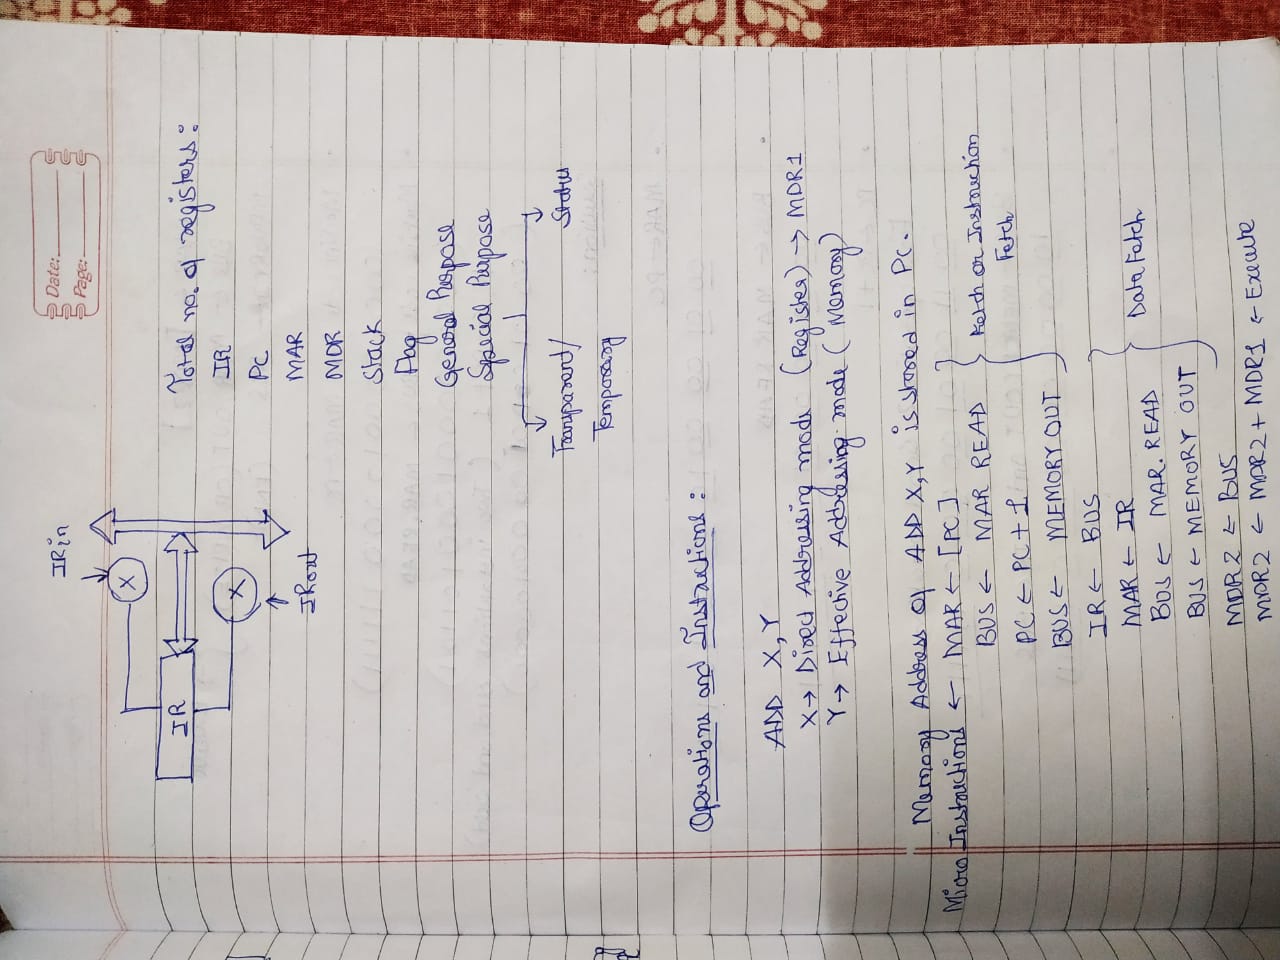 Date:
Page:
IRin
IR
X
X
IRout
Total no. of registers:
IR
PC
MAR
MDR
Stack
Flag
General Purpose
Special Purpose
Transparent/ Status
Temporary
Operations and Instructions:
ADD X,Y
X → Direct Addressing mode (Register) → MDR1
Y → Effective Addressing mode (Memory)
Memory Address of ADD X,Y is stored in PC.
Micro Instructions ← MAR ← [PC]
BUS ← MAR READ
PC ← PC + 1
BUS ← MEMORY OUT
Fetch or Instruction
Fetch
IR ← BUS
MAR ← IR
BUS ← MAR. READ
BUS ← MEMORY OUT
Data Fetch
MDR2 ← BUS
MDR2 ← MDR2 + MDR1 ← Execute